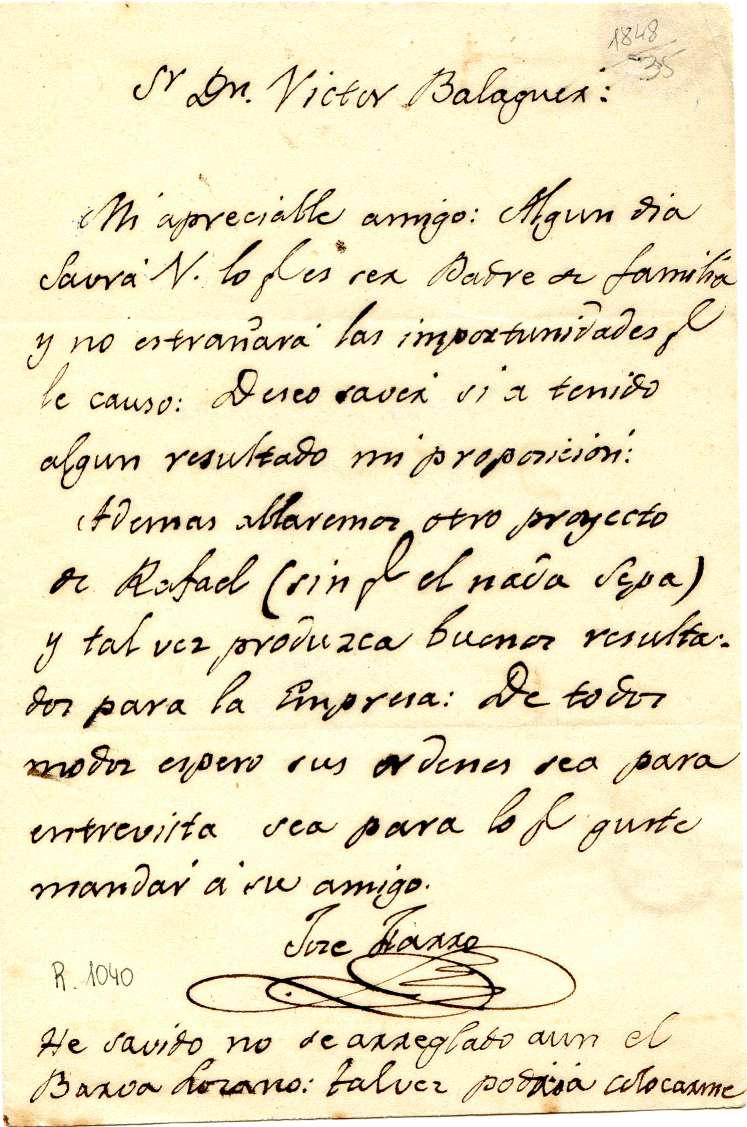 1848
35
Sr Dn. Victor Balaguer:
Mi apreciable amigo: Algun dia
Savrá V. lo q es ser Padre de familia
y no estrañará las importunidades q
le causo: Deseo saver si a tenido
algun resultado mi proposición:
Ademas ablaremos otro proyecto
de Rafael (sin q el nada Sepa)
y tal vez produzca buenos resulta-
dos para la Empresa: De todos
modos espero sus ordenes sea para
entrevista sea para lo q guste
mandar á su amigo.
Jose
R. 1040
He savido no se arreglado aun el
Barva Lozano: talvez podria colocarme